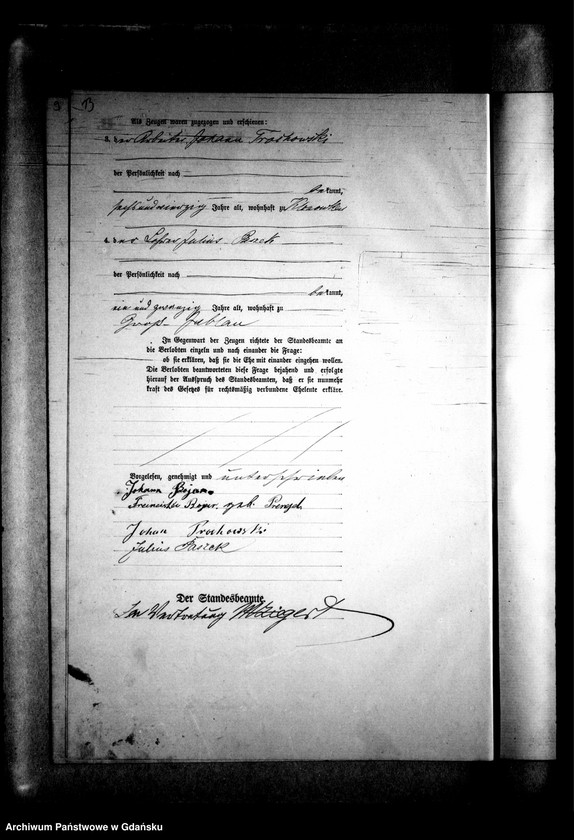 B
Als Zeugen waren zugezogen und erschienen:
der Arbeiter Johann
der Persönlichkeit nach
bekannt,
sechsundzwanzig Jahre alt, wohnhaft zu
der Julius
der Persönlichkeit nach
bekannt,
ein und zwanzig Jahre alt, wohnhaft zu
Groß Jablau
In Gegenwart der Zeugen richtete der Standesbeamte an
die Verlobten einzeln und nach einander die Frage:
ob sie erklären, daß sie die Ehe mit einander eingehen wollen.
Die Verlobten beantworteten diese Frage bejahend und erfolgte
hierauf der Ausspruch des Standesbeamten, daß er sie nunmehr
kraft des Gesetzes für rechtsmäßig verbundene Eheleute erkläre.
Vorgelesen, genehmigt und unterschrieben
Johann
geb.
Johann
Julius
Der Standesbeamte.
In Vertretung
Archiwum Państwowe w Gdańsku